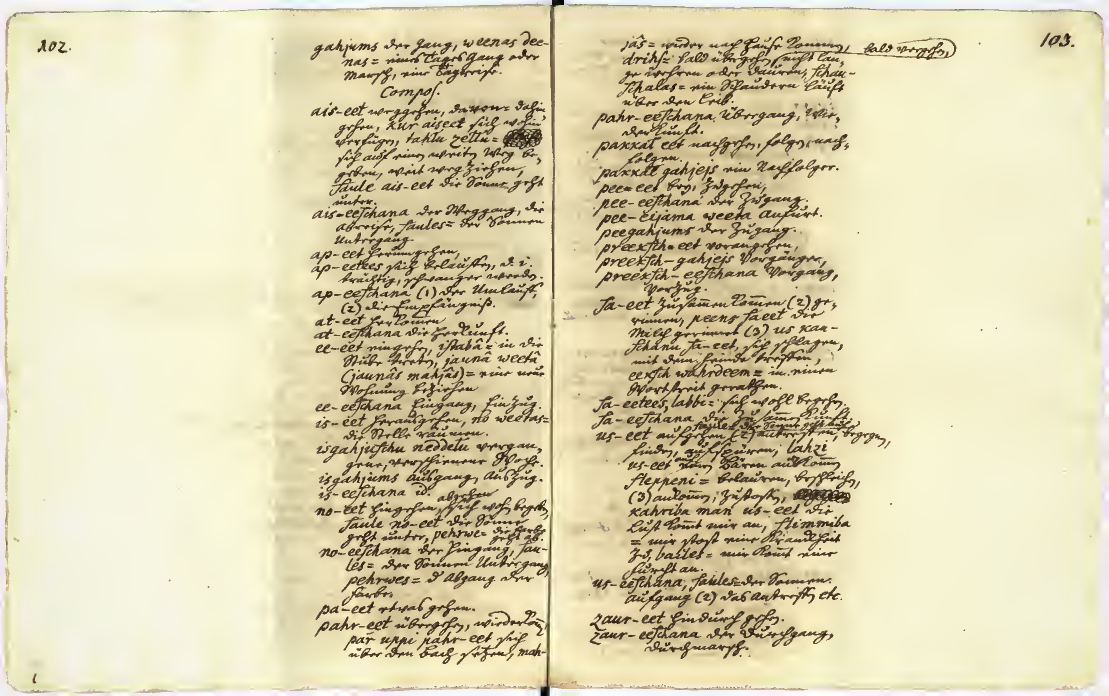 102.
gahjums der Gang, weenas dee-
nas= eines Tages Gang oder
Marsch, eine Tagreise.
Compos.
ais-eet weggehen, davon= dahin
gehen, kur aiseet sich wohin
verfügen, tahlu zellu=
sich auf einen weiten Weg be-
geben, weit weg ziehen,
Saule ais-eet die Sonne geht
unter.
ais-eeschana der Weggang, die
Abreise, saules= der Sonnen
Untergang
ap-eet herumgehen,
ap-eetees sich belauffen, d. i.
trächtig, schwanger werden.
ap-eeschana (1) der Umlauff,
(2) die Empfängniß.
at-eet herkom̅en
at-eeschana die Herkunft.
ee-eet eingehen, istabâ= in die
Stube treten, jaunâ weetâ
(jaunâs mahjâs)= eine neue
Wohnung beziehen
ee-eeschana Eingang, Einzug.
is-eet herausgehen, no weetas=
die Stelle räumen.
isgahjuschu neddelu vergan-
gene, verschienene Woche.
isgahjums Ausgang, Auszug.
is-eeschana id.
no-eet hingehen, abgehen sich wohin begeben
Saule no-eet die Sonne
geht unter, pehrwe= die Farbe geht ab.
no-eeschana der Hingang, sau-
les= der Sonnen Untergang
pehrwes= d' Abgang der
Farbe.
pa-eet etwas gehen.
pahr-eet übergehen, wiederkom̅en
par uppi pahr-eet sich
über den Bach setzen, mah-
103.
jâs= wieder nach Hause kommen, bald vergehen,
drihs= bald übergehen, nicht lan-
ge wehren oder dauren, schau-
schalas= ein Schaudern läuft
über den Leib.
pahr-eeschana Übergang, Wie-
derkunft.
pakkal eet nachgehen, folgen, nach-
folgen.
pakkal gahjejs ein Nachfolger.
pee-eet bey, zugehen,
pee-eeschana der Zugang.
pee-eijama weeta Anfurt.
peegahjums der Zugang.
preeksch=eet vorangehen,
preeksch-gahjejs Vorgänger,
preeksch-eeschana Vorgang,
Vorzug.
Sa-eet zusam̅en kom̅en (2) ge-
rinnen, peens saeet die
Milch gerinnet (3) us kau-
schanu sa-eet, sich schlagen,
mit dem Feinde treffen,
eeksch wahrdeem= in einen
Wortstreit gerathen.
Sa-eetees, labbi= sich wohl begehen.
Sa-eeschana die Zusammenkunft.
us-eet aufgehen, saule= die Sonne geht auf (2) antreffen, begegnen,
finden, aufspüren, lahzi
us-eet den Bären auf
sleppeni= belauren, beschleichen,
(3) ankom̅en, zustoßen,
kahriba man us-eet die
Lust kom̅t mir an, slimmiba
= mir stoßt eine Krankheit
zu, bailes= mir kom̅t eine
Furcht an.
us-eeschana, saules= der Sonnen
aufgang (2) das Antreffen etc.
zaur-eet hindurch gehen.
zaur-eeschana der Durchgang,
Durchmarsch.